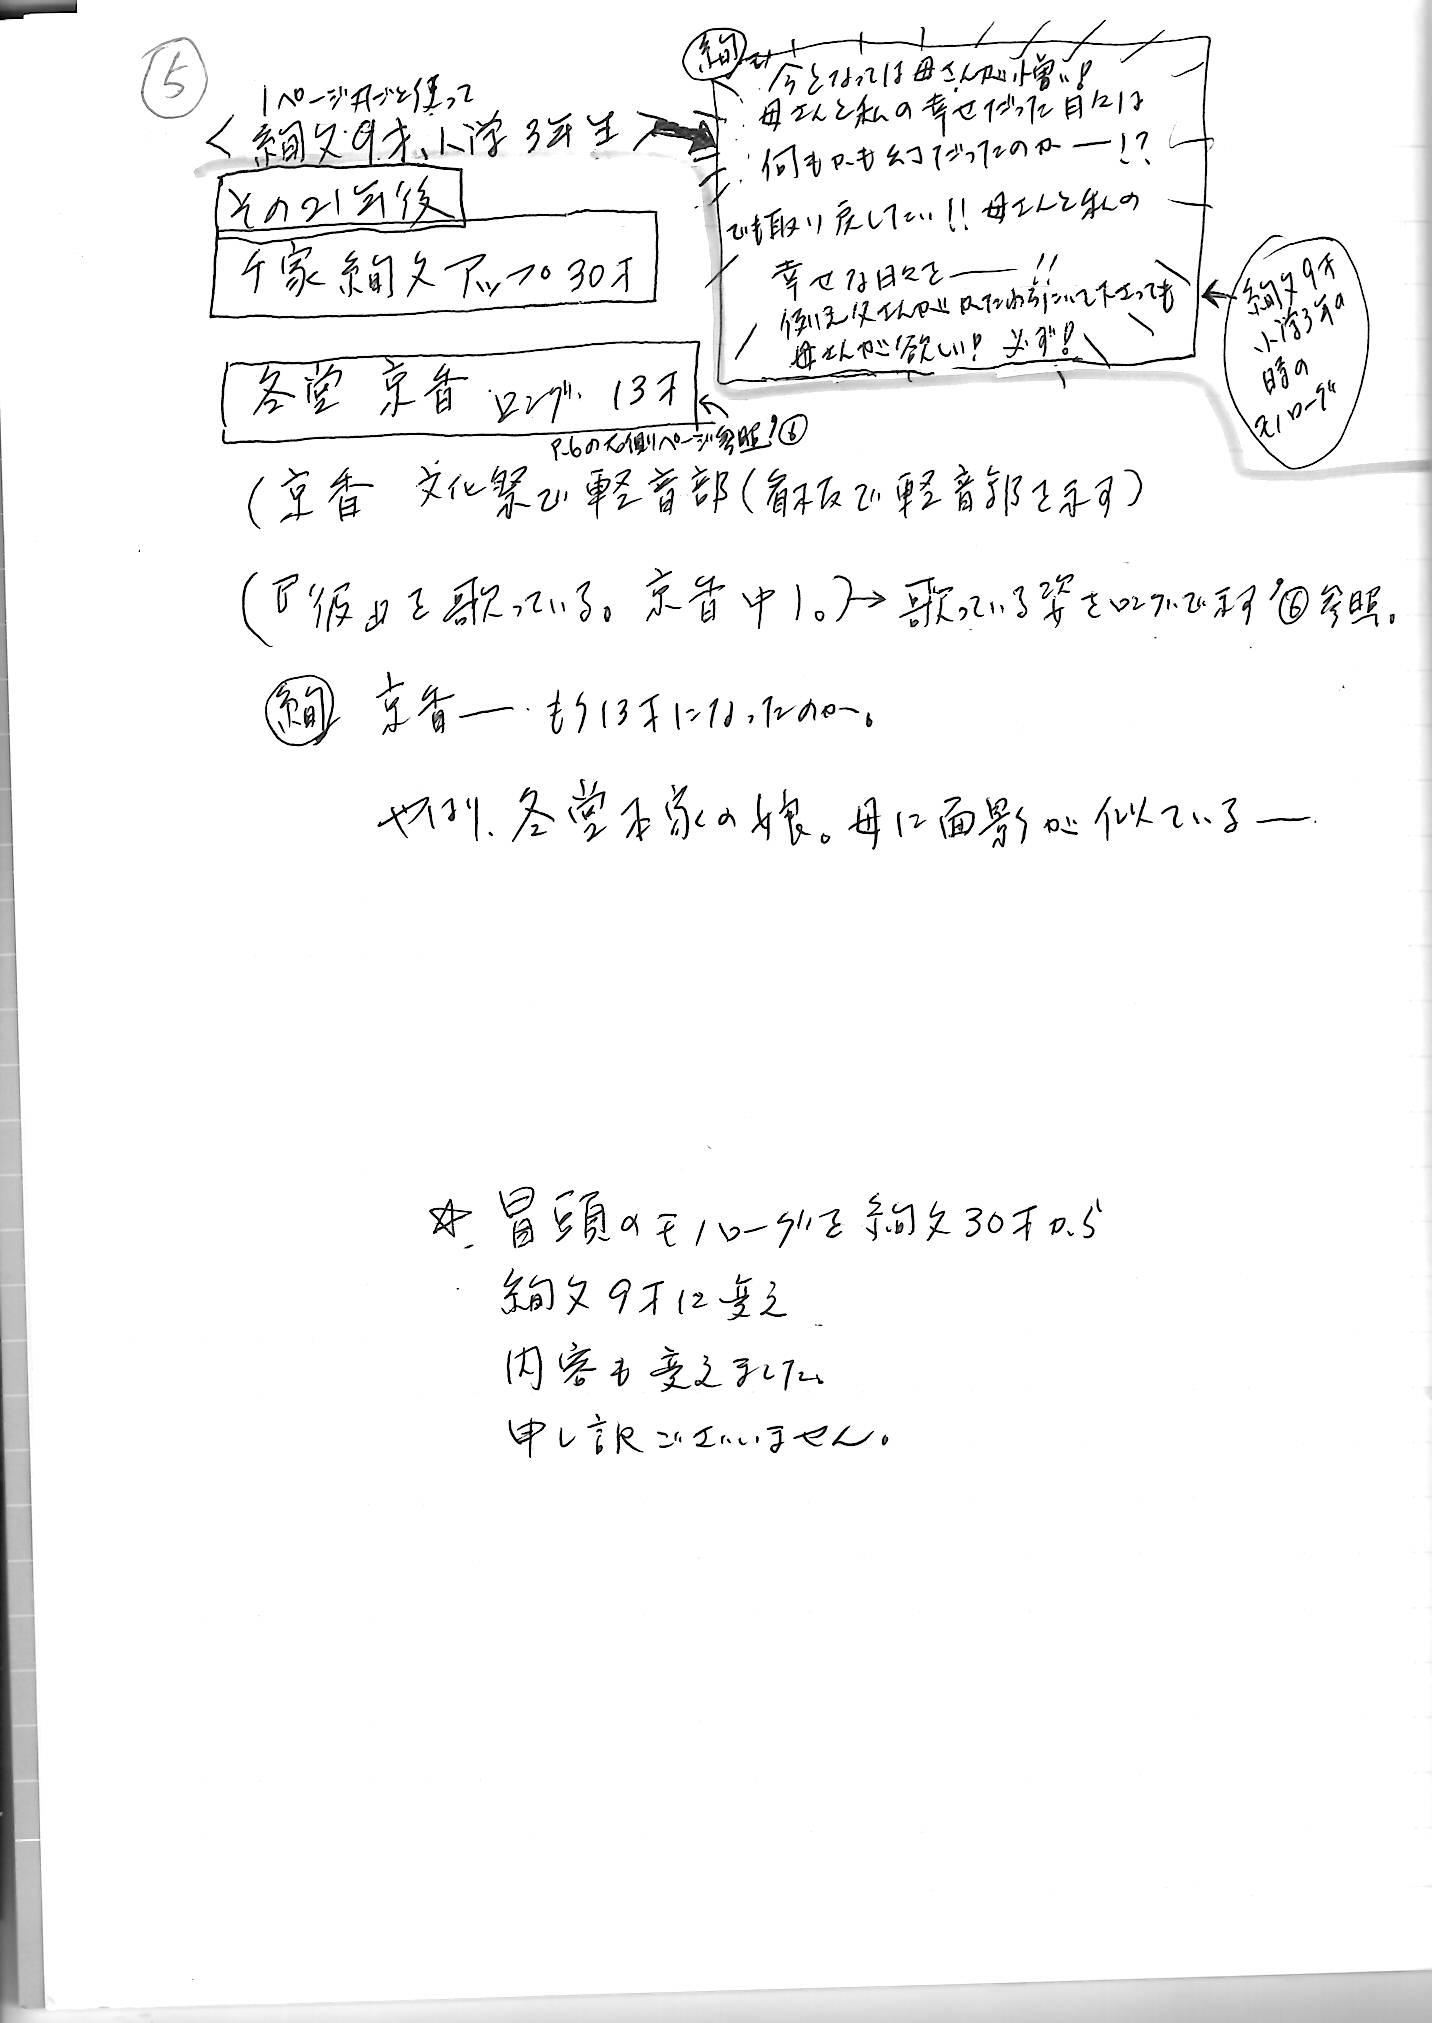 ⑤
1ページ丸ごと使って
＜絢文9才、小学3年生＞
絢
今となっては母さんが憎い!
母さんと私の幸せだった日々は
何もかも幻だったのかー!?
でも取り戻したい!!母さんと私の
幸せな日々をー!!
例え父さんが
母さんが欲しい!必ず!
絢文9才
小学3年の
時の
モノローグ
その21年後
千家絢文アップ30才
冬堂 京香 ロング 13才
P.6の右側ページ参照'⑥
(京香 文化祭で軽音部(看板で軽音部を示す)
(『彼』を歌っている。京香中1。)→歌っている姿をロングで示す'⑥参照。
絢 京香ー もう13才になったのか。
やはり、冬堂本家の娘。母に面影が似ているー
☆冒頭のモノローグを絢文30才から
絢文9才に変え
内容も変えました。
申し訳ございません。